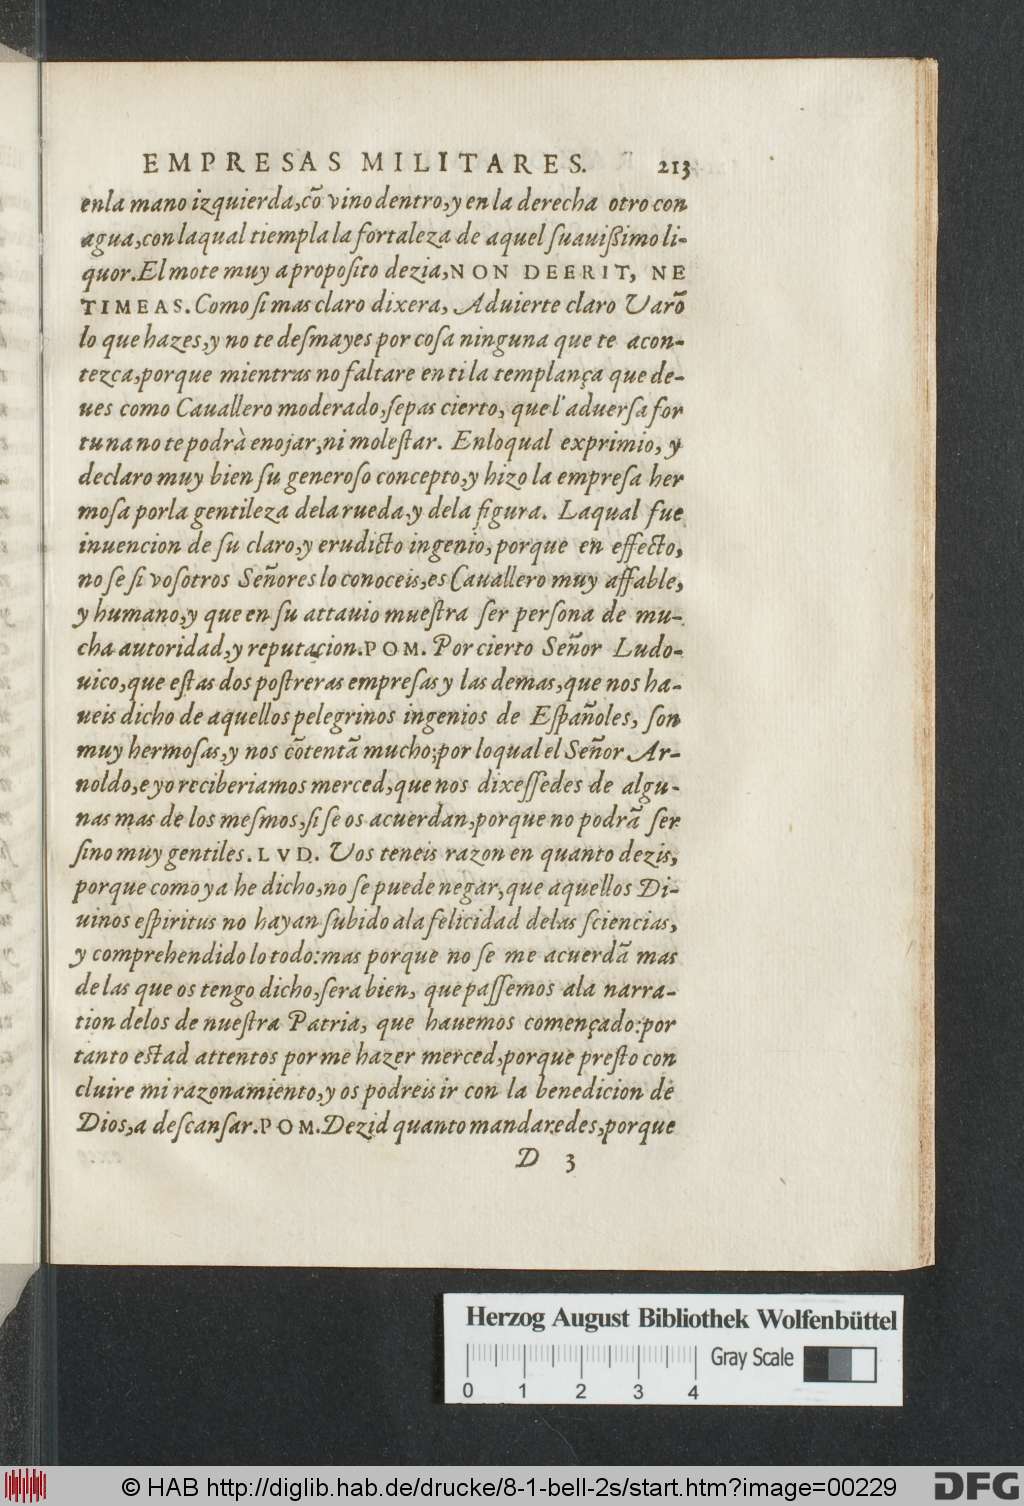 EMPRESAS MILITARES. 213
enla mano izquierda,cõ vino dentro,y en la derecha otro con
agua,con laqual tiempla la fortaleza de aquel ſuauißimo li-
quor. El mote muy a propoſito dezia, NON DEERIT, NE
TIMEAS. Como ſi mas claro dixera, Aduierte claro Varõ
lo que hazes,y no te deſmayes por coſa ninguna que te acon-
tezca,porque mientras no faltare en ti la templança que de-
ues como Cauallero moderado,ſepas cierto, que l'aduerſa for
tuna no te podrà enojar,ni moleſtar. Enloqual exprimio, y
declaro muy bien ſu generoſo concepto,y hizo la empreſa her
moſa porla gentileza dela rueda,y dela figura. Laqual fue
inuencion de ſu claro,y erudicto ingenio,porque en effecto,
no ſe ſi voſotros Señores lo conoceis,es Cauallero muy affable,
y humano,y que en ſu attauio mueſtra ſer perſona de mu-
cha autoridad,y reputacion. POM. Por cierto Señor Ludo-
uico,que eſtas dos poſtreras empreſas y las demas,que nos ha-
ueis dicho de aquellos pelegrinos ingenios de Eſpañoles, ſon
muy hermoſas,y nos cõtentã mucho;por loqual el Señor Ar-
noldo,e yo reciberiamos merced,que nos dixeſſedes de algu-
nas mas de los meſmos,ſi ſe os acuerdan,porque no podrã ſer
ſino muy gentiles. LVD. Vos teneis razon en quanto dezis,
porque como ya he dicho,no ſe puede negar,que aquellos Di-
uinos eſpiritus no hayan ſubido ala felicidad delas ſciencias,
y comprehendido lo todo:mas porque no ſe me acuerdã mas
de las que os tengo dicho,ſera bien, que paſſemos ala narra-
tion delos de nueſtra Patria, que hauemos començado:por
tanto eſtad attentos por me hazer merced,porque preſto con
cluire mi razonamiento,y os podreis ir con la benedicion de
Dios,a deſcanſar. POM. Dezid quanto mandaredes,porque
D 3
Herzog August Bibliothek Wolfenbüttel
Gray Scale
0 1 2 3 4
© HAB http://diglib.hab.de/drucke/8-1-bell-2s/start.htm?image=00229
DFG